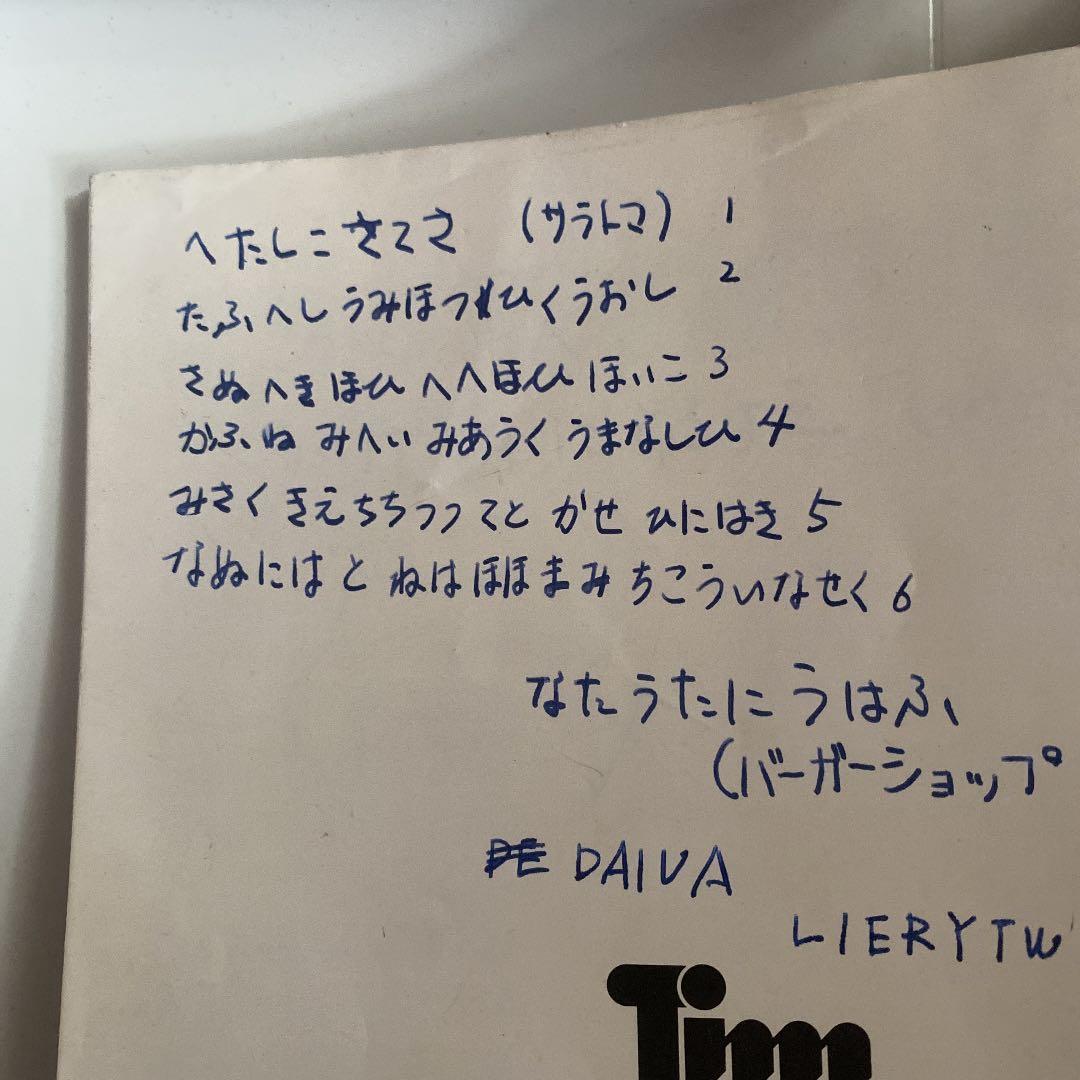 へたしこさてさ (サラトマ) 1
たふへしうみほつれひくうおし 2
さぬへきほひへへほひほいこ 3
かふねみへいみあうくうまなしひ 4
みさくきえちちつつてとかせひにはき 5
なぬにはとねはほほまみちこういなせく 6
なたうたにうはふ
(バーガーショップ
DAIVA
LIERYTW
Tim